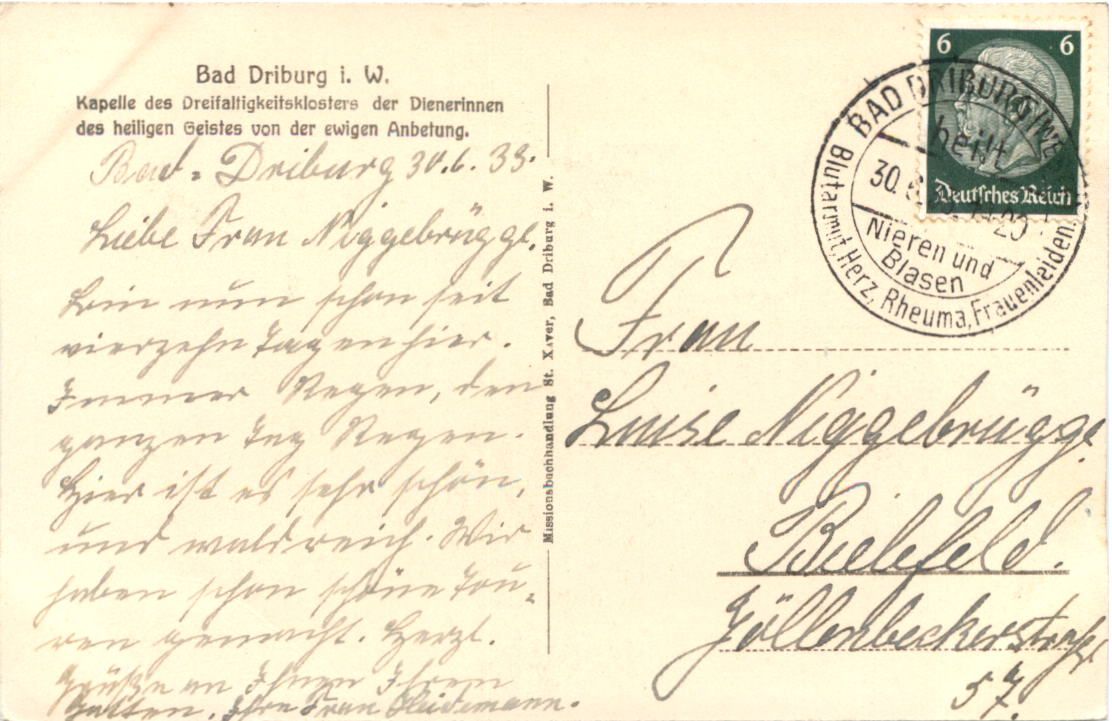 Bad Driburg i. W.
Kapelle des Dreifaltigkeitsklosters der Dienerinnen
des heiligen Geistes von der ewigen Anbetung.
Bad-Driburg 30.6.33.
Liebe Frau Niggebrügge.
Bin nun schon seit
vierzehn Tagen hier.
Immer Regen, den
ganzen Tag Regen.
Hier ist es sehr schön,
und waldreich. Wir
haben schon schöne Tou-
ren gemacht. Herzl.
Grüße an Ihnen Ihrem
Gatten. Ihre Frau
Missionsbuchhandlung St. Xaver, Bad Driburg i. W.
6 6
Deutsches Reich
BAD DRIBURG
heilt
30.6.
20
Nieren und
Blasen
Blutarmut, Herz, Rheuma, Frauenleiden.
Frau
Luise Niggebrügge
Bielefeld.
Jöllenbeckerstraße
57.